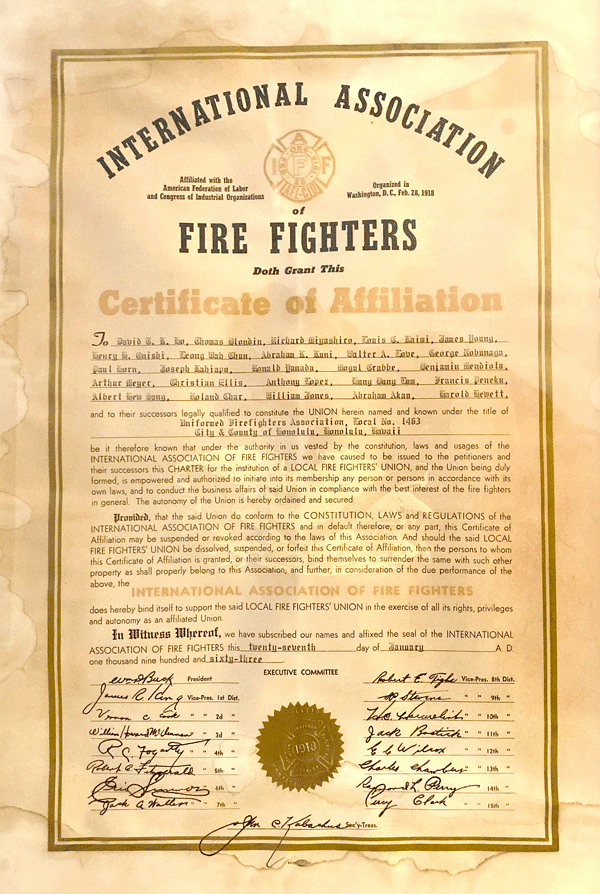 INTERNATIONAL ASSOCIATION
A
I F F
Affiliated with the
American Federation of Labor
and Congress of Industrial Organizations
Organized in
Washington, D.C., Feb. 28, 1918
of
FIRE FIGHTERS
Doth Grant This
Certificate of Affiliation
To David T. K. Ho, Thomas Blondin, Richard Miyashiro, Louis C. Kaini, James Young,
Henry H. Onishi, Leong Wah Chun, Abraham K. Kani, Walter A. Love, George Nobunaga,
Paul Horn, Joseph Kahiapo, Ronald Yamada, Mogul Crabbe, Benjamin Mendiola,
Arthur Meyer, Christian Ellis, Anthony Lopez, Lum, Francis Peneku,
Albert Hew Sang, Roland Char, William Jones, Abraham Akau, Harold Hewett,
and to their successors legally qualified to constitute the UNION herein named and known under the title of
Uniformed Firefighters Association, Local No. 1463
City & County of Honolulu, Honolulu, Hawaii
be it therefore known that under the authority in us vested by the constitution, laws and usages of the
INTERNATIONAL ASSOCIATION OF FIRE FIGHTERS we have caused to be issued to the petitioners and
their successors this CHARTER for the institution of a LOCAL FIRE FIGHTERS' UNION, and the Union being duly
formed, is empowered and authorized to initiate into its membership any person or persons in accordance with its
own laws, and to conduct the business affairs of said Union in compliance with the best interest of the fire fighters
in general. The autonomy of the Union is hereby ordained and secured
Provided, that the said Union do conform to the CONSTITUTION, LAWS and REGULATIONS of the
INTERNATIONAL ASSOCIATION OF FIRE FIGHTERS and in default therefore, or any part, this Certificate of
Affiliation may be suspended or revoked according to the laws of this Association. And should the said LOCAL
FIRE FIGHTERS' UNION be dissolved, suspended, or forfeit this Certificate of Affiliation, then the persons to whom
this Certificate of Affiliation is granted, or their successors, bind themselves to surrender the same with such other
property as shall properly belong to this Association, and further, in consideration of the due performance of the
above, the
INTERNATIONAL ASSOCIATION OF FIRE FIGHTERS
does hereby bind itself to support the said LOCAL FIRE FIGHTERS' UNION in the exercise of all its rights, privileges
and autonomy as an affiliated Union.
In Witness Whereof, we have subscribed our names and affixed the seal of the INTERNATIONAL
ASSOCIATION OF FIRE FIGHTERS this twenty-seventh day of January A. D.
one thousand nine hundred and sixty-three
EXECUTIVE COMMITTEE
Wm D Buck President
James R. King Vice-Pres. 1st Dist.
Vernon C Cook " " 2d "
William Howard McClennan " 3d "
R. C. Fogarty " " 4th "
Robert A. Fitzgerald " " 5th "
6th "
Jack A Waller " " 7th "
1918
Robert E. Tighe Vice-Pres. 8th Dist.
Stevens " " 9th "
" " 10th "
Jack Bostick " " 11th "
E C Wilcox " " 12th "
Charles Chambers " " 13th "
Raymond L Perry " " 14th "
Perry Clark " " 15th "
John C Kabachus Sec'y-Treas.